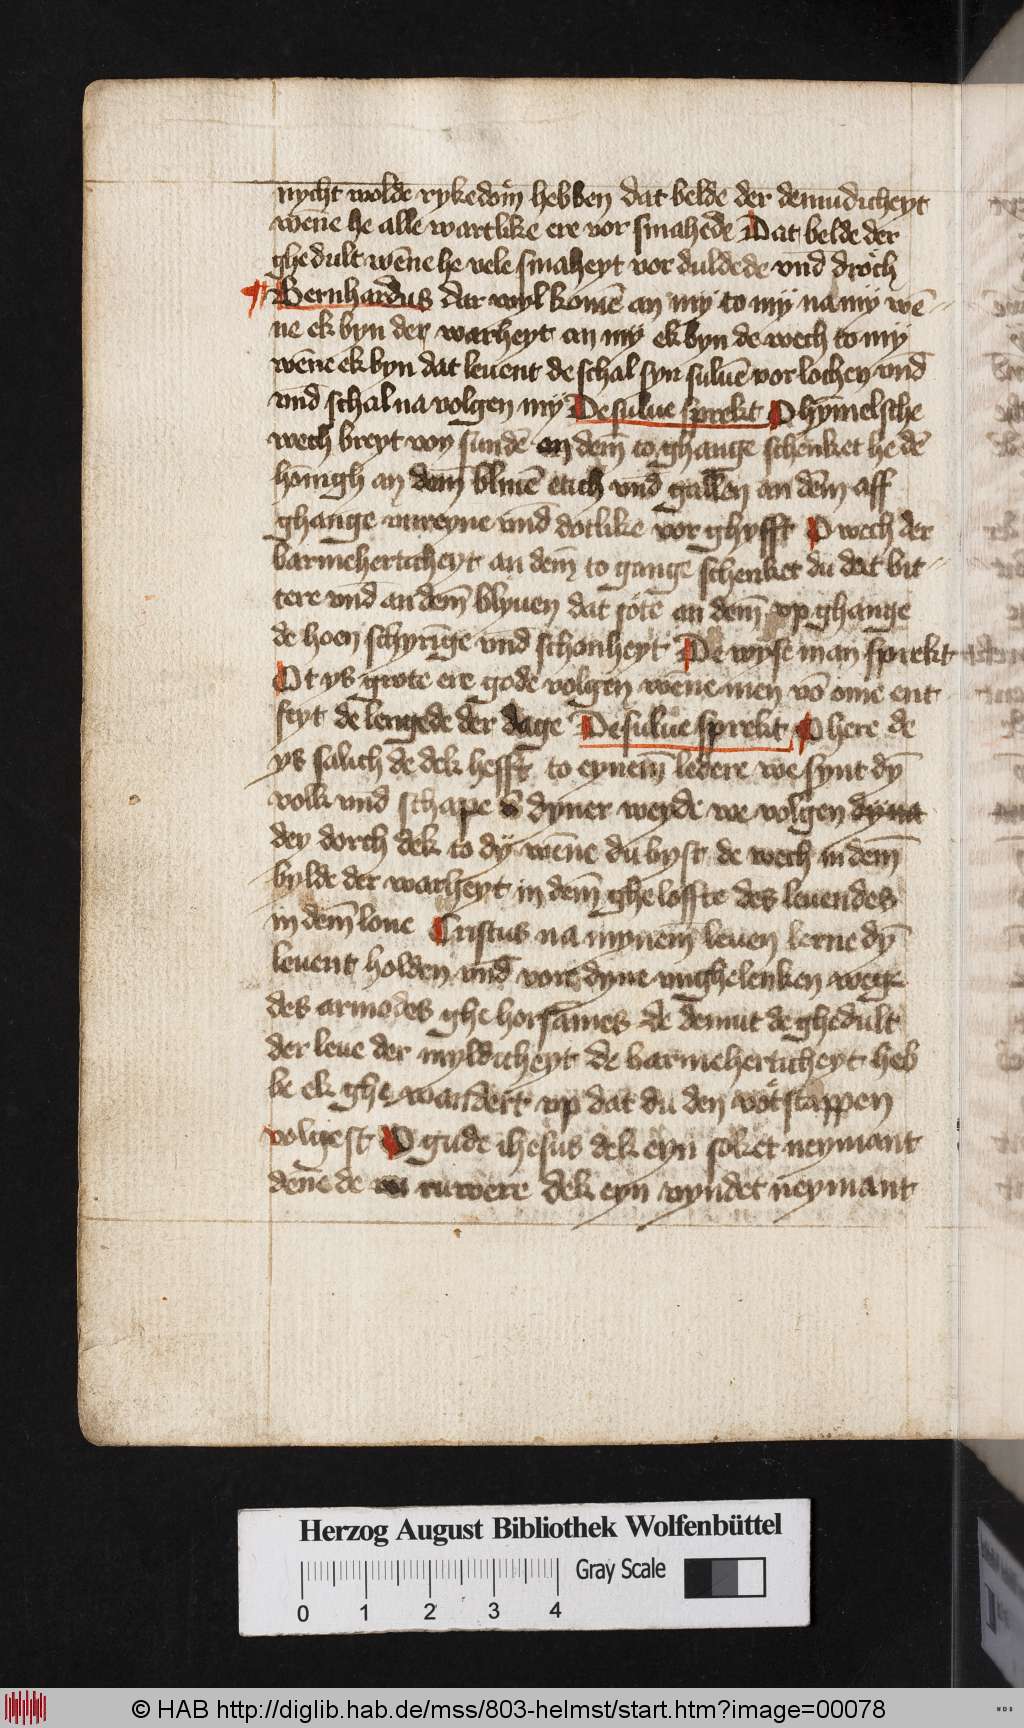 nycht wolde rykedom̄ hebben dat belde der demudicheyt
wēne he alle wartlike ere vor smahede Dat belde der
ghedult wēne he vele smaheyt vorduldede vnd̄ droͤch
¶ Bernhardus dar wyl komē an my to my na my wē-
ne ek byn der warheyt an my ek byn de wech to my
wēne ek byn dat leuent de schal syn suluē vorlochen vnd̄
vnd̄ schal na volgen my De sulue sprekt O hym̄elsche
wech breyt voy sundē an dem̄ to ghange schenket he dē
hōnigh an dem̄ bliuē etich vnd̄ gallen an dēm aff
ghange vnreyne vnd̄ dotlike vorghyfft O wech der
barmeherticheyt an dem̄ to gange schenket du dat bit-
tere vnd̄ an dem̄ blyuen dat sote an dem̄ vpghange
de hoen schyrīge vnd schonheyt De wyse man sprekt
Ot ys grote ere gode volgen wēne men vō ome ent
feyt de lengede der dage De sulue sprekt O here de
ys salich de dek hefft to eynem̄ ledere we synt dȳ
volk vnd schape dyner weyde we volgen dy na
dey dorch dek to dy wēne du byst de wech in dem̄
bylde der warheyt in dem̄ ghelofte des leuendes
in dem̄ lone Cristus na mynem̄ leuen lerne dȳ
leuent holden vnd̄ vore dyne vnghelenken wege
des armodes ghehorsames de demut de ghedult
der leue der myldicheyt de barmeherticheyt heb
be ek ghewandert vp dat du den voͤtstappen
volgest O gude ihesus dek eyn soket neymant
dēne de ruwere dek eyn vyndet neymant
Herzog August Bibliothek Wolfenbüttel
Gray Scale
0 1 2 3 4
© HAB http://diglib.hab.de/mss/803-helmst/start.htm?image=00078